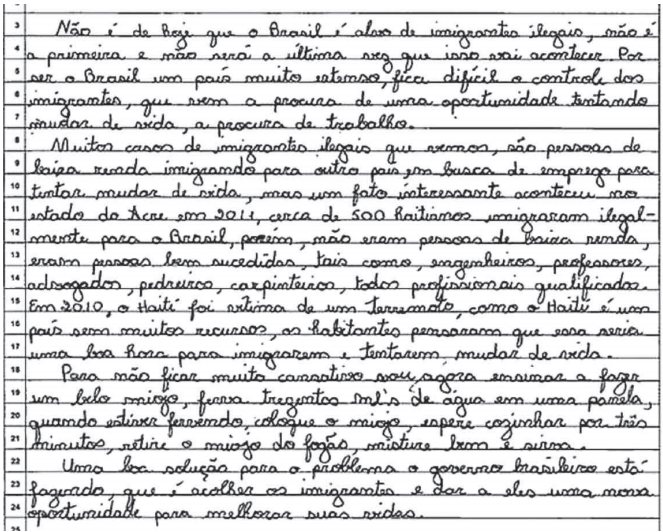 3 Não é de hoje que o Brasil é alvo de imigrantes ilegais, não é
4 a primeira e não será a última vez que isso vai acontecer. Por
5 ser o Brasil um país muito extenso, fica difícil o controle dos
6 imigrantes, que vem a procura de uma oportunidade tentando
7 mudar de vida, a procura de trabalho.
8 Muitos casos de imigrantes ilegais que vemos, são pessoas de
9 baixa renda imigrando para outro país em busca de emprego para
10 tentar mudar de vida, mas um fato interessante aconteceu no
11 estado do Acre em 2011, cerca de 500 haitianos imigraram ilegal-
12 mente para o Brasil, porém, não eram pessoas de baixa renda,
13 eram pessoas bem sucedidas, tais como, engenheiros, professores,
14 advogados, pedreiros, carpinteiros, todos profissionais qualificados.
15 Em 2010, o Haiti foi vítima de um terremoto, como o Haiti é um
16 país sem muitos recursos, os habitantes pensaram que essa seria
17 uma boa hora para imigrarem e tentarem mudar de vida.
18 Para não ficar muito cansativo vou agora ensinar a fazer
19 um belo miojo, ferva trezentos ml's de água em uma panela,
20 quando estiver fervendo, coloque o miojo, espere cozinhar por três
21 minutos, retire o miojo do fogão, misture bem e sirva.
22 Uma boa solução para o problema o governo brasileiro está
23 fazendo, que é acolher os imigrantes e dar a eles uma nova
24 oportunidade para melhorar suas vidas.
25